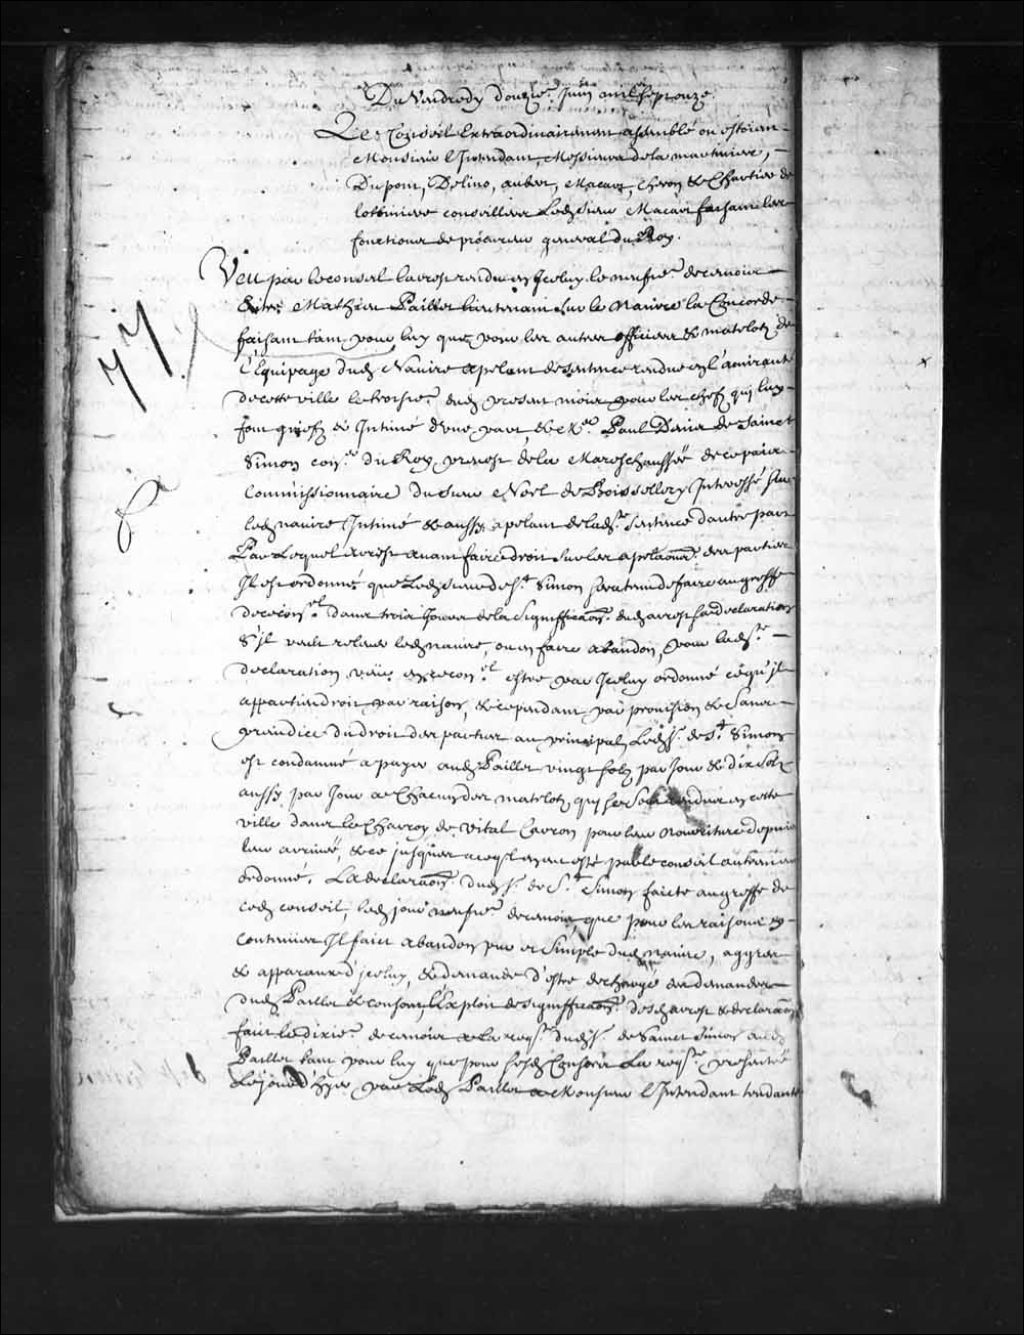 Du Vendredy douzie. Juin mil sept onze.
Le Conseil Extraordinairement assemblé ou estoient
Monsieur l'Intendant, Messieurs de la martiniere,
Dupont, Delino, aubert, Macart, Cheron & Chartier de
lotbiniere conseillers Ledt sieur Macart faisant les
fonctions de procureur general du Roy.
Veu par le conseil l'arrest rendu en Iceluy le neufie. de ce mois
Entre Mathieu Paillet lieutenant sur le Navire la Concorde
faisant tant pour luy que pour les autres officiers & matelots de
l'Equipage dudt Navire apelant de sentence rendue en l'amirauté
de cette ville le troisie. dudt present mois pour les chefs qui luy
font griefs & Intimé d'une part, & Me. Paul Denis de Saint
Simon conr. du Roy prevost de la Mareschaussée de ce païs
Commissionnaire du sieur Noël de Boissellery Interessé sur
ledt navire Intimé & aussy apelant de ladte. Sentence d'autre part
Par Lequel Arrest avant faire droit sur les apellaons. des parties
Il est ordonné que Ledt sieur de St. Simon sera tenu de faire au greffe
de ce conel. dans trois Jours de la Significaon. dudt arrest sa declaration
S'il veut relever ledt navire, ou en faire abandon, pour ladte.
declaration veüe en ce conel. estre par Iceluy ordonné ce qu'il
appartiendroit par raison, & cependant par provision & sans
prejudice du droit des parties au principal, Ledt Sr. de St. Simon
est condamné a payer audt Paillet vingt sols par Jour & dix sols
aussy par Jour a Chacun des matelots qui se sont rendus en cette
ville dans le Charroy de Vital Caron pour leur nourriture depuis
leur arrivée, & ce jusques a ce qu'il en ait esté par le conseil autrement
ordonné. La declaraon. dudt Sr. de St. Simon faicte au greffe de
cedt conseil, ledt jour neufie. de ce mois, que pour les raisons y
contenües Il fait abandon pur et simple dudt navire, aggrez
& apparaux d'iceluy, & demande d'estre dechargé des demandes
dudt Paillet & consors, l'Exploit de significaon. desdts arrest & declaraon
fait le dixie. de ce mois a la reqte. dudt Sr. de Saint Simon audt
Paillet tant pour luy que pour sesdts Consors La reqte. presentée
Le jour d'hyer par Ledt Paillet a Monsieur l'Intendant tendante